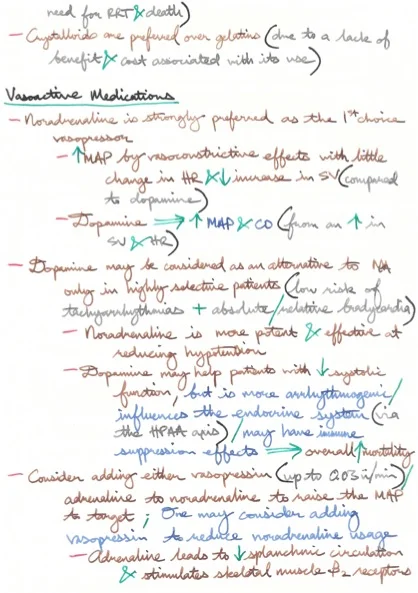 need for RRT & death)
– Crystalloids are preferred over gelatins (due to a lack of
benefit & cost associated with its use)
Vasoactive Medications
– Noradrenaline is strongly preferred as the 1st choice
vasopressor
– ↑ MAP by vasoconstrictive effects with little
change in HR & ↓ increase in SV (compared
to dopamine)
– Dopamine ⟹ ↑ MAP & CO (from an ↑ in
SV & HR)
– Dopamine may be considered as an alternative to NA
only in highly selective patients (low risk of
tachyarrhythmias + absolute/relative bradycardia)
– Noradrenaline is more potent & effective at
reducing hypotension
– Dopamine may help patients with ↓ systolic
function, but is more arrhythmogenic/
influences the endocrine system (via
the HPAA axis)/may have immune
suppression effects ⟹ overall ↑ mortality
– Consider adding either vasopressin (up to 0.03 u/min)/
adrenaline to noradrenaline to raise the MAP
to target; One may consider adding
vasopressin to reduce noradrenaline usage
– Adrenaline leads to ↓ splanchnic circulation
& stimulates skeletal muscle β2 receptors